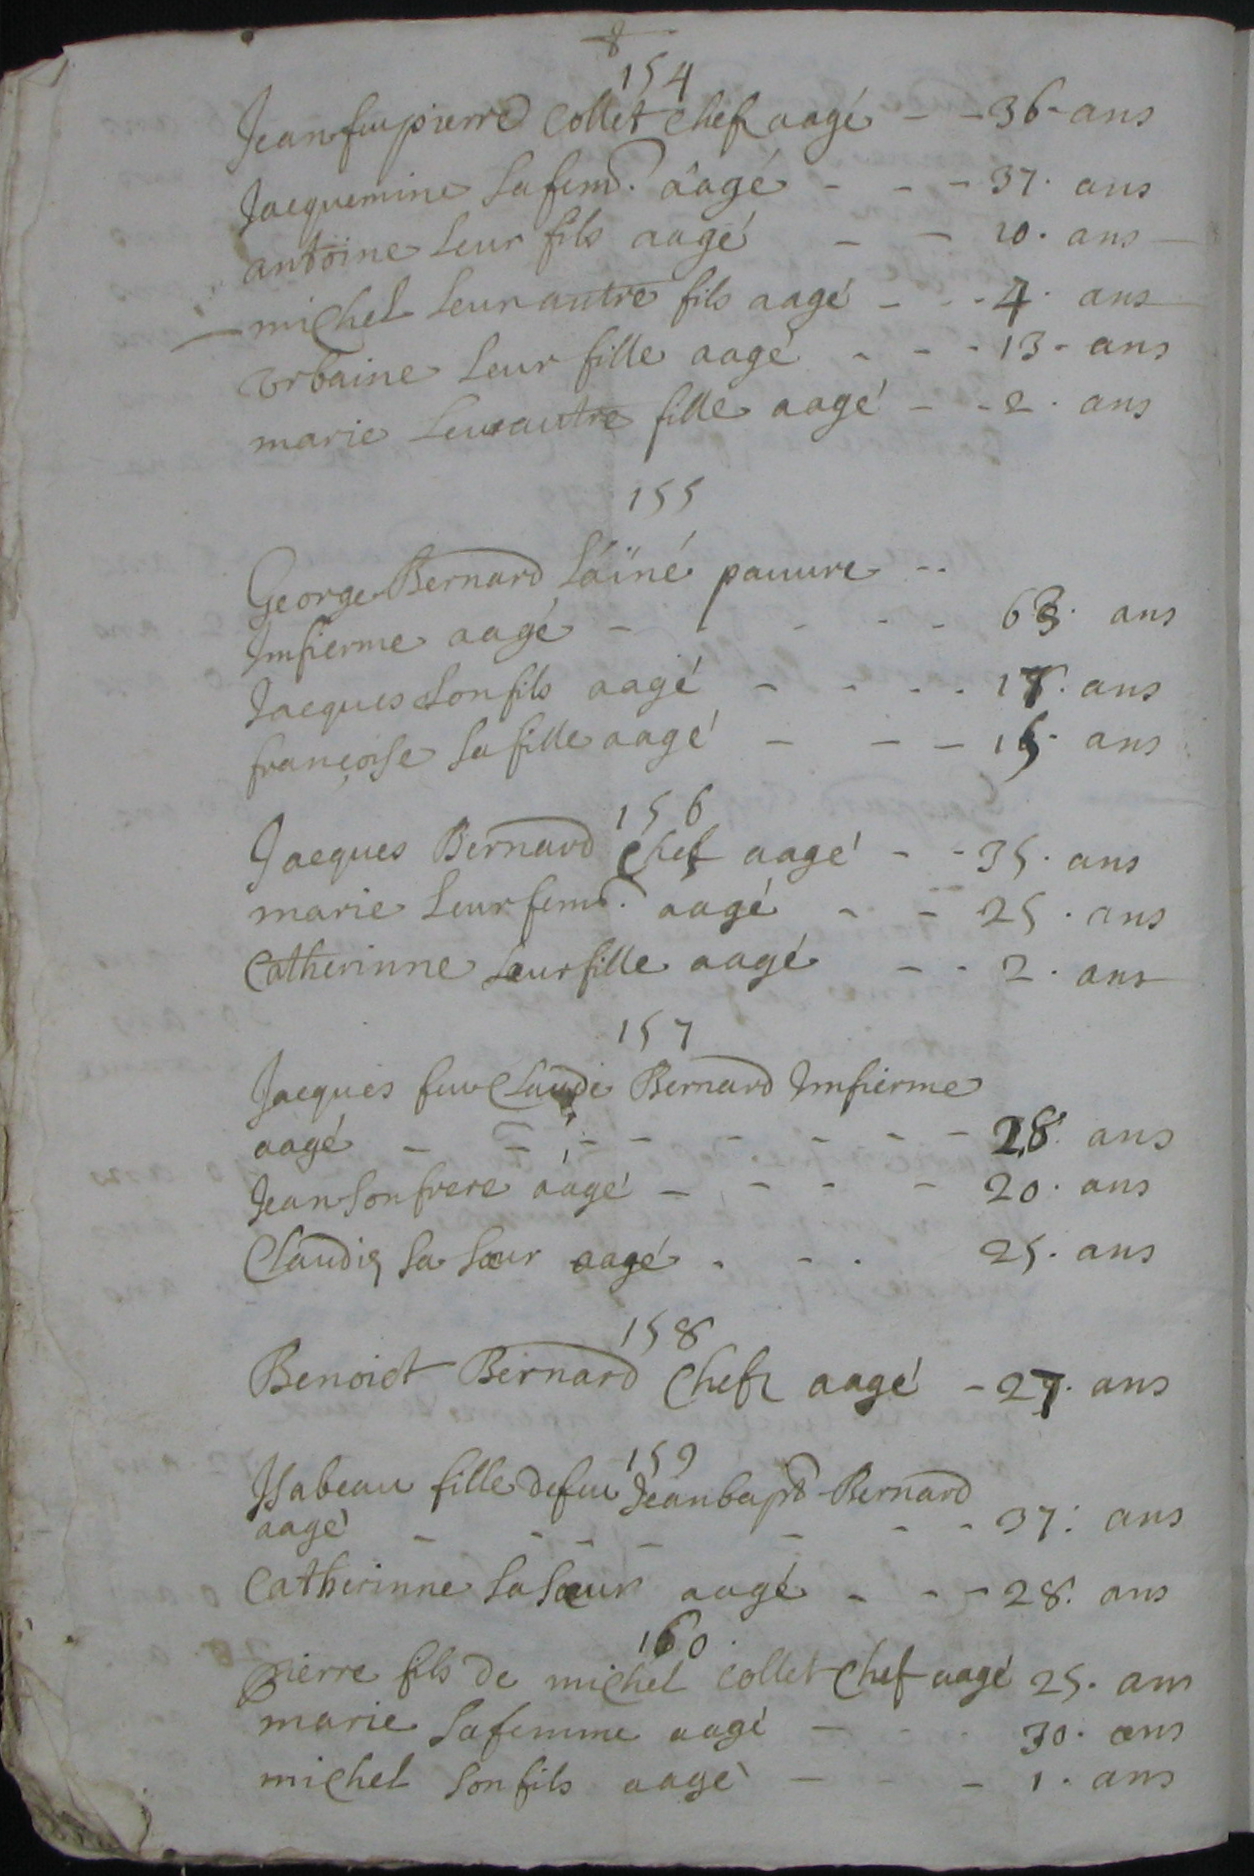 154
Jean feu pierre Collet chef aagé - - 36 - ans
Jacquemine sa fem. aagé - - - 37 . ans
antoine leur fils aagé - - 10 . ans
michel leur autre fils aagé - - - 4 . ans
Vrbaine leur fille aagé - - - 13 - ans
marie leur autre fille aagé - - 2 . ans
155
George Bernard láïné pauure - -
Imfierme aagé - - - - - ans
Jacques son fils aagé - - - - ans
françoise sa fille aagé - - - ans
156
Jacques Bernard Chef aagé - - 35 . ans
marie leur fem. aagé - - 25 . ans
Catherinne leur fille aagé - - 2 . ans
157
Jacques feu Claude Bernard Imfierme
aagé - - - - - - - - 28 . ans
Jean son frere aagé - - - - 20 . ans
Claudie sa sœur aagé . - . 25 . ans
158
Benoict Bernard Chef aagé - 27 . ans
159
Isabeau fille de feu Jean bapt Bernard
aagé - - - - - - - 37 : ans
Catherinne sa sœur aagé - - - 28 . ans
160 .
Pierre fils de michel Collet Chef aagé 25 . ans
marie sa femme aagé - - - 30 . ans
michel son fils aagé - - - 1 . ans